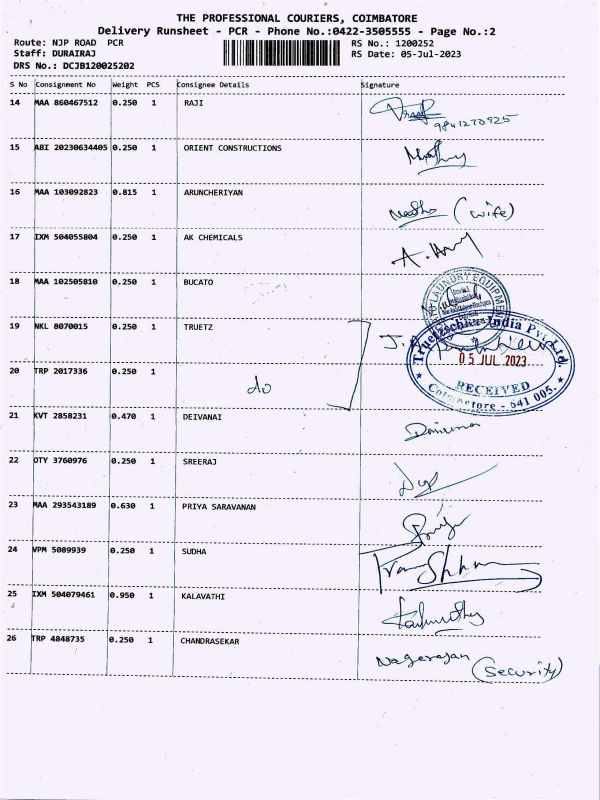 THE PROFESSIONAL COURIERS, COIMBATORE
Delivery Runsheet - PCR - Phone No.:0422-3505555 - Page No.:2
Route: NJP ROAD PCR RS No.: 1200252
Staff: DURAIRAJ RS Date: 05-Jul-2023
DRS No.: DCJB120025202
S No Consignment No Weight PCS Consignee Details Signature
14 MAA 860467512 0.250 1 RAJI
9841270925
15 ABI 20230634405 0.250 1 ORIENT CONSTRUCTIONS
16 MAA 103092823 0.815 1 ARUNCHERIYAN
(wife)
17 IXM 504055804 0.250 1 AK CHEMICALS
18 MAA 102505810 0.250 1 BUCATO
LAUNDRY EQUIPMENT
19 NKL 8070015 0.250 1 TRUETZ
Truetzschler India Pvt. Ltd.
05 JUL 2023
RECEIVED
Coimbatore - 641 005.
20 TRP 2017336 0.250 1 do
21 KVT 2858231 0.470 1 DEIVANAI
22 OTY 3760976 0.250 1 SREERAJ
23 MAA 293543189 0.630 1 PRIYA SARAVANAN
24 VPM 5089939 0.250 1 SUDHA
25 IXM 504079461 0.950 1 KALAVATHI
26 TRP 4848735 0.250 1 CHANDRASEKAR
Nagerajan (Security)